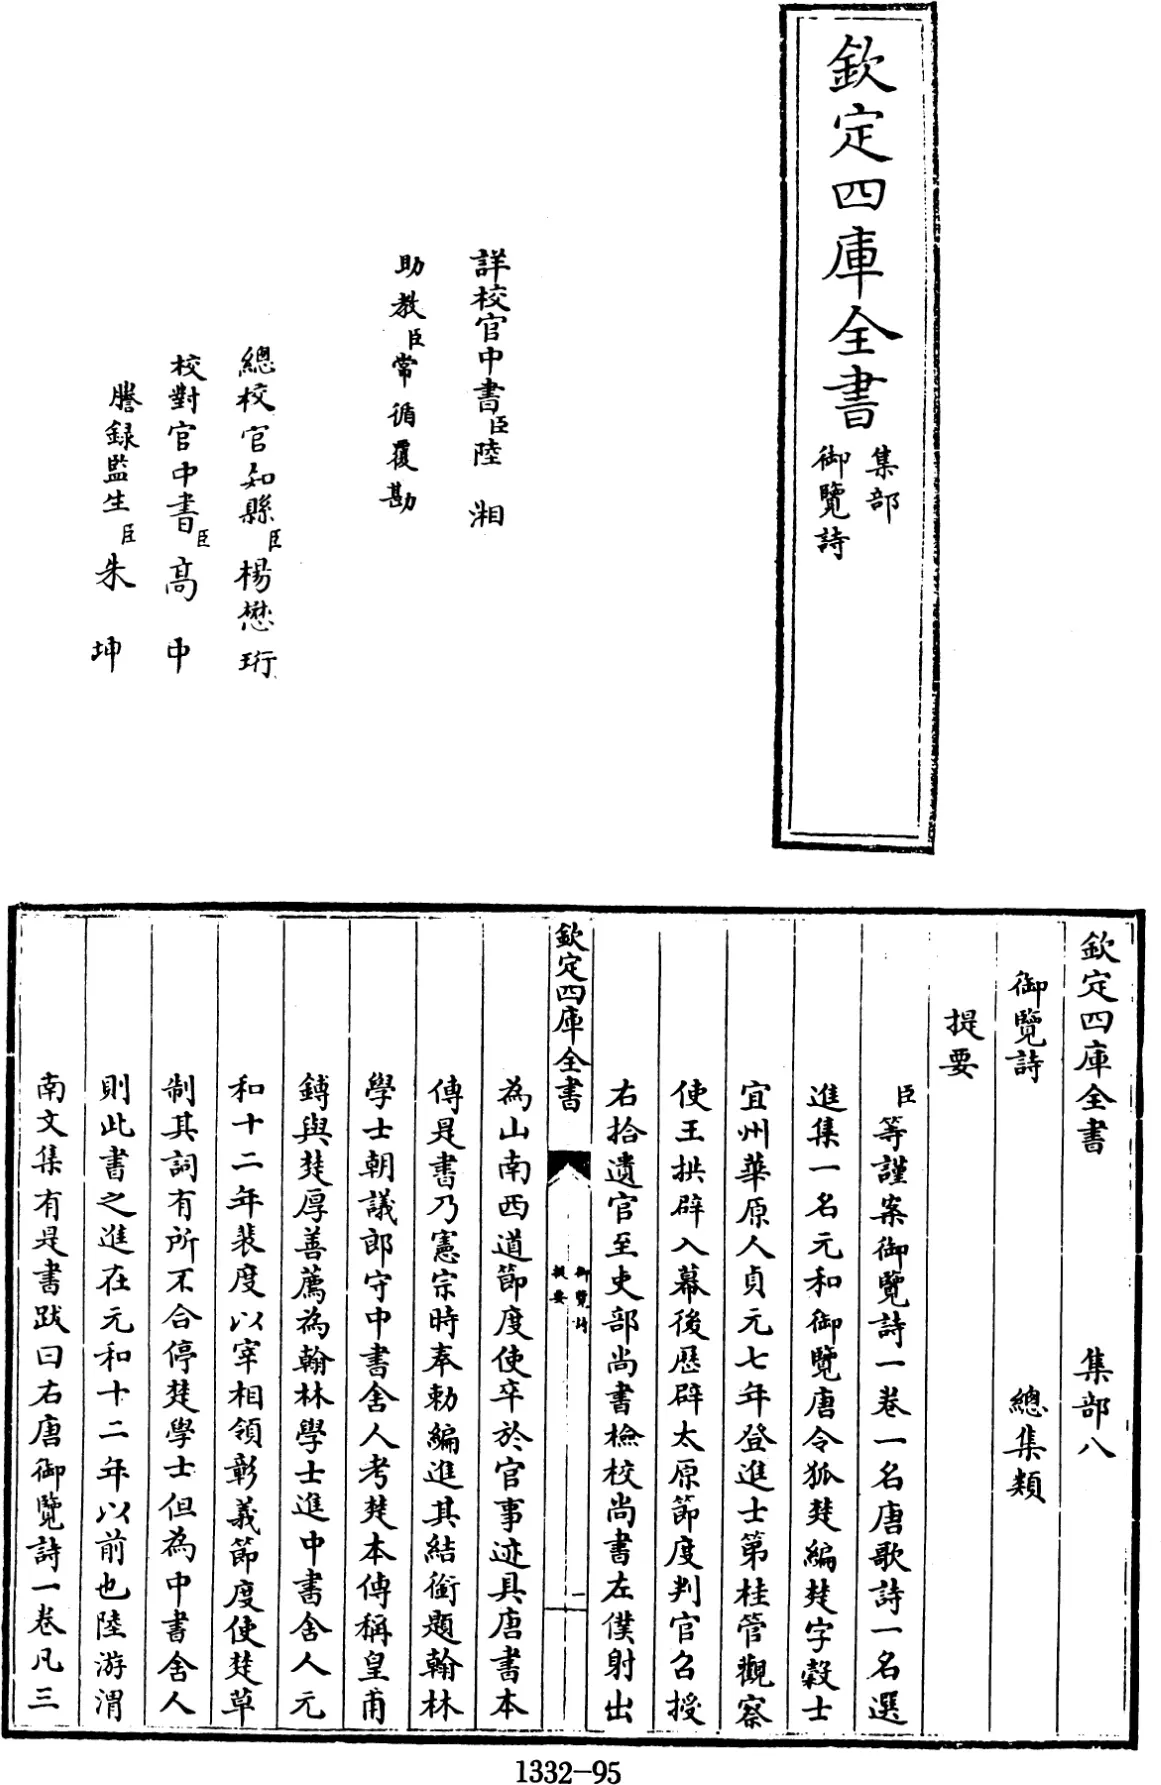 欽定四庫全書
集部
御覽詩
詳校官中書臣陸湘
助教臣常循覆勘
總校官知縣臣楊懋珩
校對官中書臣高中
謄録監生臣朱坤
欽定四庫全書 集部八
御覽詩 總集類
提要
臣等謹案御覽詩一卷一名唐歌詩一名選
進集一名元和御覽唐令狐楚編楚字穀士
宜州華原人貞元七年登進士第桂管觀察
使王拱辟入幕後歴辟太原節度判官召授
右拾遺官至吏部尚書檢校尚書左僕射出
欽定四庫全書
御覽詩
提要
一
為山南西道節度使卒於官事迹具唐書本
傳是書乃憲宗時奉勅編進其結銜題翰林
學士朝議郎守中書舍人考楚本傳稱皇甫
鎛與楚厚善薦為翰林學士進中書舍人元
和十二年裴度以宰相領彰義節度使楚草
制其詞有所不合停楚學士但為中書舍人
則此書之進在元和十二年以前也陸游渭
南文集有是書跋曰右唐御覽詩一卷凡三
1332-95